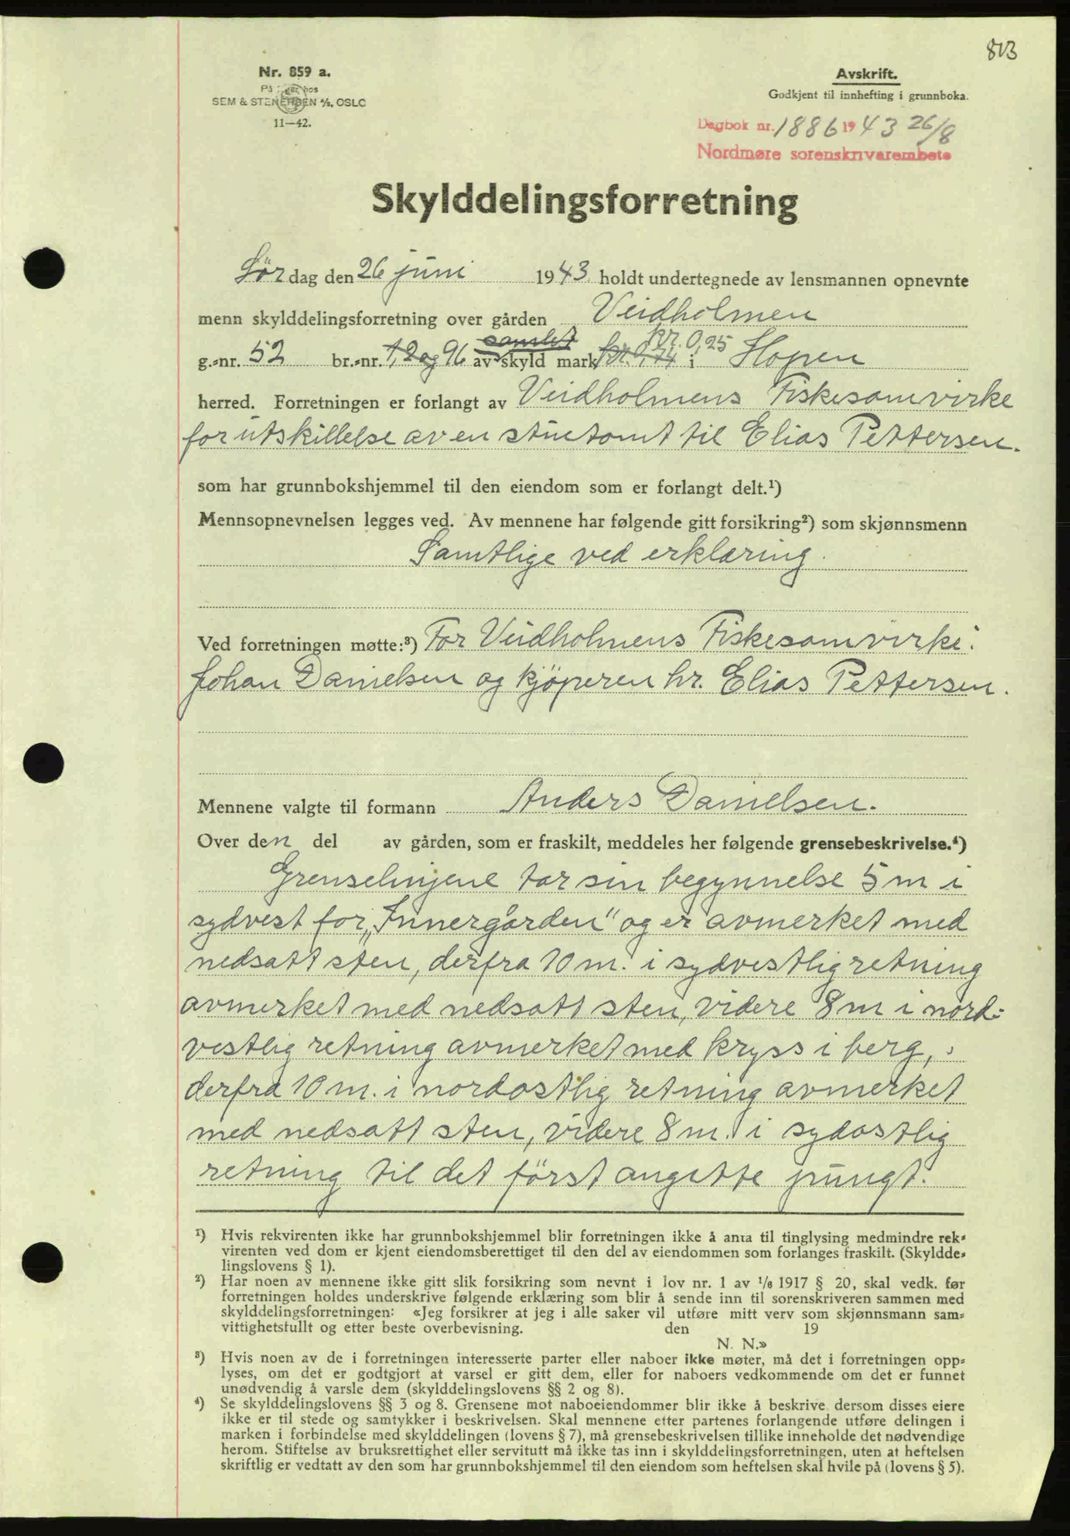 813
Nr. 859 a.
På lager hos
SEM & STENERSEN A/S, OSLO
11—42.
Avskrift.
Godkjent til innhefting i grunnboka.
Dagbok nr. 1886 1943 26/8
Nordmøre sorenskriverembete
Skylddelingsforretning
Lördag den 26 juni 1943 holdt undertegnede av lensmannen opnevnte
menn skylddelingsforretning over gården Veidholmen
g.-nr. 52 br.-nr. 1,2 og 96 av samlet skyld mark kr. 0,74 kr. 0,25 i Hopen
herred. Forretningen er forlangt av Veidholmens Fiskesamvirke
for utskillelse av en stuetomt til Elias Pettersen.
som har grunnbokshjemmel til den eiendom som er forlangt delt.¹)
Mennsopnevnelsen legges ved. Av mennene har følgende gitt forsikring²) som skjønnsmenn
Samtlige ved erklæring.
Ved forretningen møtte:³) For Veidholmens Fiskesamvirke:
Johan Danielsen og kjöperen hr. Elias Pettersen.
Mennene valgte til formann Anders Danielsen.
Over den del av gården, som er fraskilt, meddeles her følgende grensebeskrivelse.⁴)
Grenselinjene tar sin begynnelse 5 m i
sydvest for „Innergården" og er avmerket med
nedsatt sten, derfra 10 m. i sydvestlig retning
avmerket med nedsatt sten, videre 8 m i nord-
vestlig retning avmerket med kryss i berg,
derfra 10 m. i nordostlig retning avmerket
med nedsatt sten, videre 8 m. i sydostlig
retning til det först angitte pungt.
¹) Hvis rekvirenten ikke har grunnbokshjemmel blir forretningen ikke å anta til tinglysing medmindre rek-
virenten ved dom er kjent eiendomsberettiget til den del av eiendommen som forlanges fraskilt. (Skyldde-
lingslovens § 1).
²) Har noen av mennene ikke gitt slik forsikring som nevnt i lov nr. 1 av 1/6 1917 § 20, skal vedk. før
forretningen holdes underskrive følgende erklæring som blir å sende inn til sorenskriveren sammen med
skylddelingsforretningen: «Jeg forsikrer at jeg i alle saker vil utføre mitt verv som skjønnsmann sam-
vittighetsfullt og etter beste overbevisning. den 19
N. N.»
³) Hvis noen av de i forretningen interesserte parter eller naboer ikke møter, må det i forretningen opp-
lyses, om det er godtgjort at varsel er gitt dem, eller for naboers vedkommende om det er funnet
unødvendig å varsle dem (skylddelingslovens §§ 2 og 8).
⁴) Se skylddelingslovens §§ 3 og 8. Grensene mot naboeiendommer blir ikke å beskrive dersom disses eiere
ikke er til stede og samtykker i beskrivelsen. Skal mennene etter partenes forlangende utføre delingen i
marken i forbindelse med skylddelingen (lovens § 7), må grensebeskrivelsen tillike inneholde det nødvendige
herom. Stiftelse av bruksrettighet eller servitutt må ikke tas inn i skylddelingsforretningen, uten at heftelsen
skriftlig er vedtatt av den som har grunnbokshjemmel til den eiendom som heftelsen skal hvile på (lovens § 5).